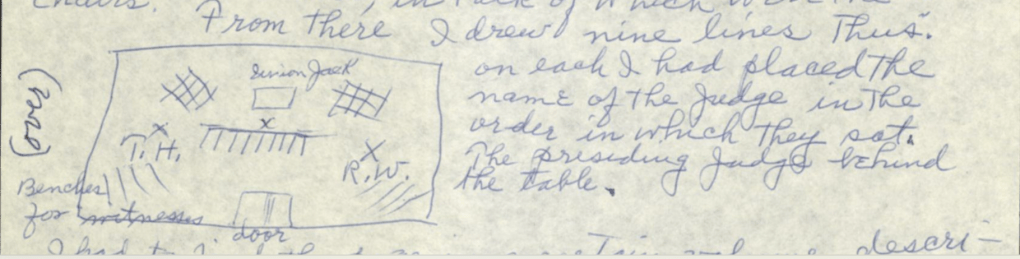 chairs. in back of which were the
From there I drew nine lines Thus.
on each I had placed the
name of the Judge in the
order in which they sat.
The presiding Judge behind
the table.
(over)
Union Jack
x
x
T. H.
X
R.W.
Benches
for witnesses
door
I had to descri-